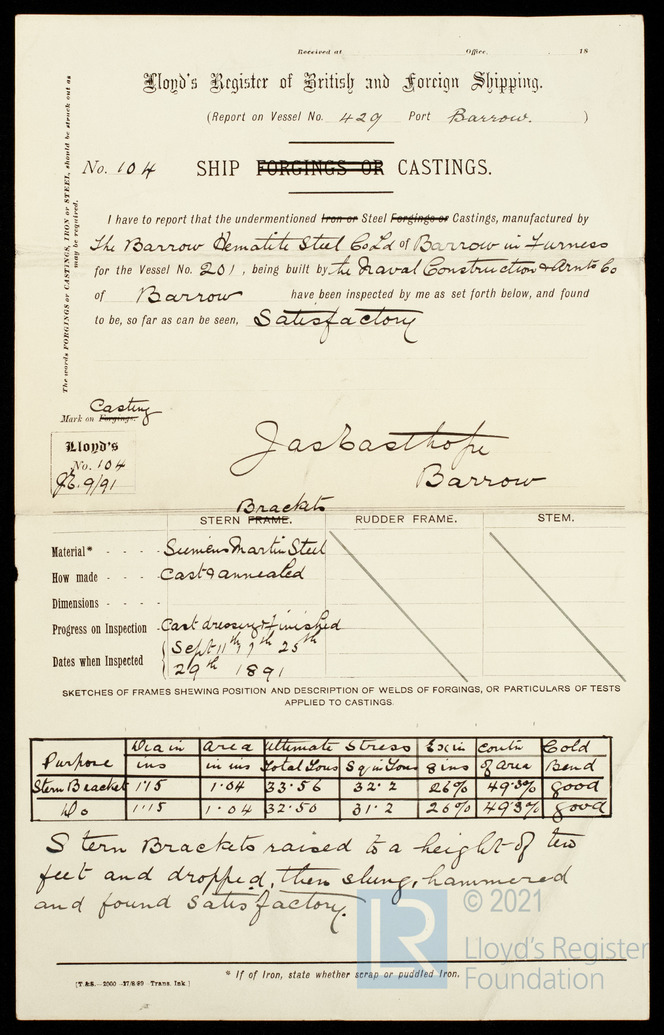 Received at Office, 18
Lloyd's Register of British and Foreign Shipping.
(Report on Vessel No. 429 Port Barrow. )
No. 104 SHIP FORGINGS OR CASTINGS.
The words FORGINGS or CASTINGS, IRON or STEEL, should be struck out as may be required.
I have to report that the undermentioned Iron or Steel Forgings or Castings, manufactured by
The Barrow Hematite Steel Co Ld of Barrow in Furness
for the Vessel No. 201, being built by the Naval Construction & Armts Co
of Barrow have been inspected by me as set forth below, and found
to be, so far as can be seen, Satisfactory
Casting
Mark on Forgings.
Lloyd's
No. 104
JE. 9/91
Jas Easthope
Barrow
Brackets
STERN FRAME. RUDDER FRAME. STEM.
Material* - - - - Siemens Martin Steel
How made - - - - Cast & annealed
Dimensions - - - -
Progress on Inspection - Cast dressing & Finished
Dates when Inspected Sept 11th 25th
29th 1891
SKETCHES OF FRAMES SHEWING POSITION AND DESCRIPTION OF WELDS OF FORGINGS, OR PARTICULARS OF TESTS
APPLIED TO CASTINGS.
Purpose Dia in ins Area in ins Ultimate Stress Total Tons Sq in Tons Ex in 8 ins Contn of area Cold Bend
Stern Bracket 1·15 1·04 33·56 32·2 26% 49·3% good
Do 1·15 1·04 32·50 31·2 26% 49·3% good
Stern Brackets raised to a height of ten
feet and dropped, then slung, hammered
and found satisfactory.
LR
© 2021
Lloyd's Register
Foundation
* If of Iron, state whether scrap or puddled Iron.
[T. & S.—2000 —27/8/90—Trans. Ink.]